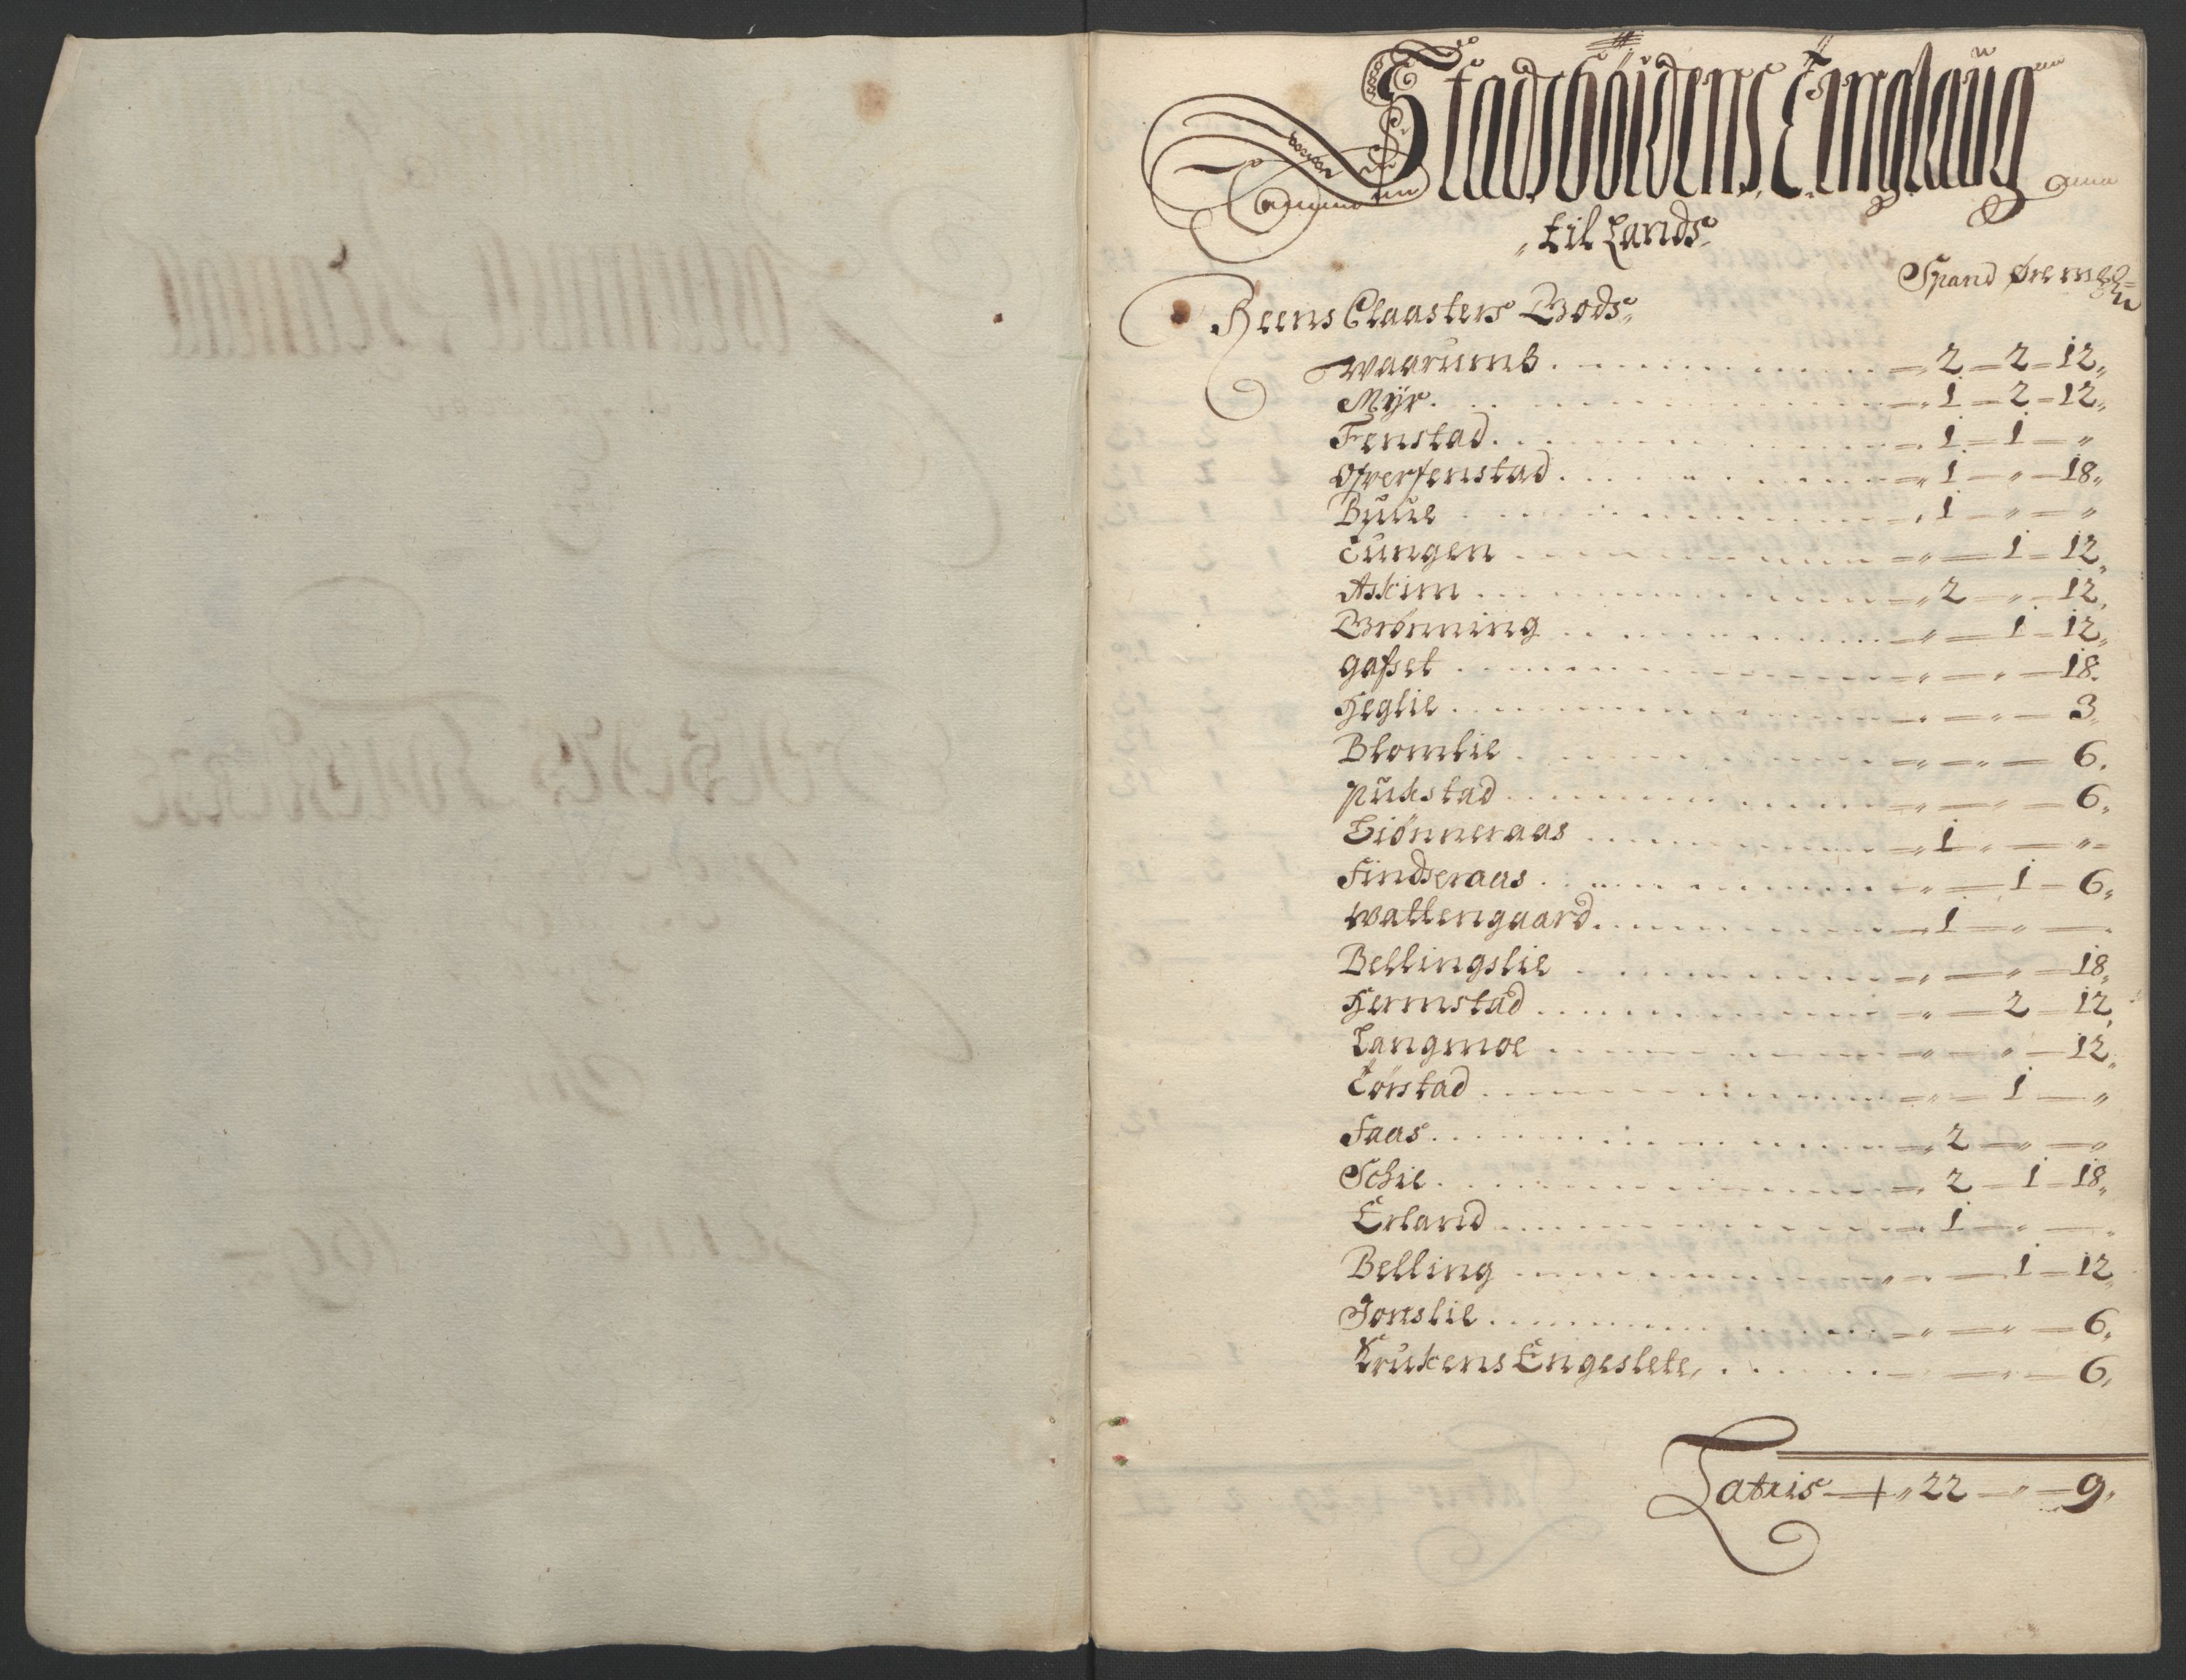 Stadsböidens Tinglaug
til Lands
Spand Øre
Reens Claasters Gods
Waarumb . . . 2 – 2 – 12
Myr . . . 1 – 2 – 12
Fenstad . . . 1 – 1 – „
Ofverfenstad . . . 1 – „ – 18
Byue . . . 1 – „ – „
Tungen . . . „ – 1 – 12
Askim . . . 2 – „ – 12
Grönning . . . „ – 1 – 12
Gafset . . . „ – „ – 18
Heglie . . . „ – „ – 3
Blomlie . . . „ – „ – 6
Pukstad . . . „ – „ – 6
Liönneraas . . . 1 – „ – „
Findseraas . . . „ – 1 – 6
Wattengaard . . . 1 – „ –
Bellingslie . . . „ – „ – 18
Hermstad . . . „ – 2 – 12
Langmoe . . . „ – „ – 12
Törstad . . . „ – 1 – „
Faas . . . 2 – „ – „
Schie . . . 2 – 1 – 18
Erland . . . 1 – „ –
Belling . . . „ – 1 – 12
Jonslie . . . „ – „ – 6
Krukens Engeslete . . . „ – 6
Latris – 22 – „ – 9